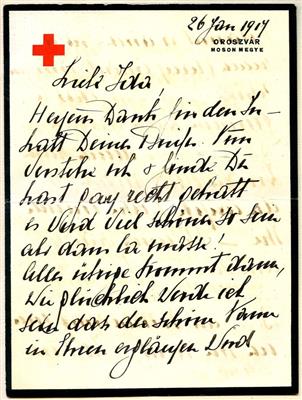 26 Jan 1917
OROSZVÁR
MOSON MEGYE
Liebe Ida!
Dank für den In-
halt Deines Briefes. Nun
verstehe ich & finde Du
hast ganz recht gehabt
es wird viel schöner so sein
als dans la masse!
Alles übrige kommt dann,
Wie glücklich werde ich
sein das der schöne Name
in Ehren erglänzen wird